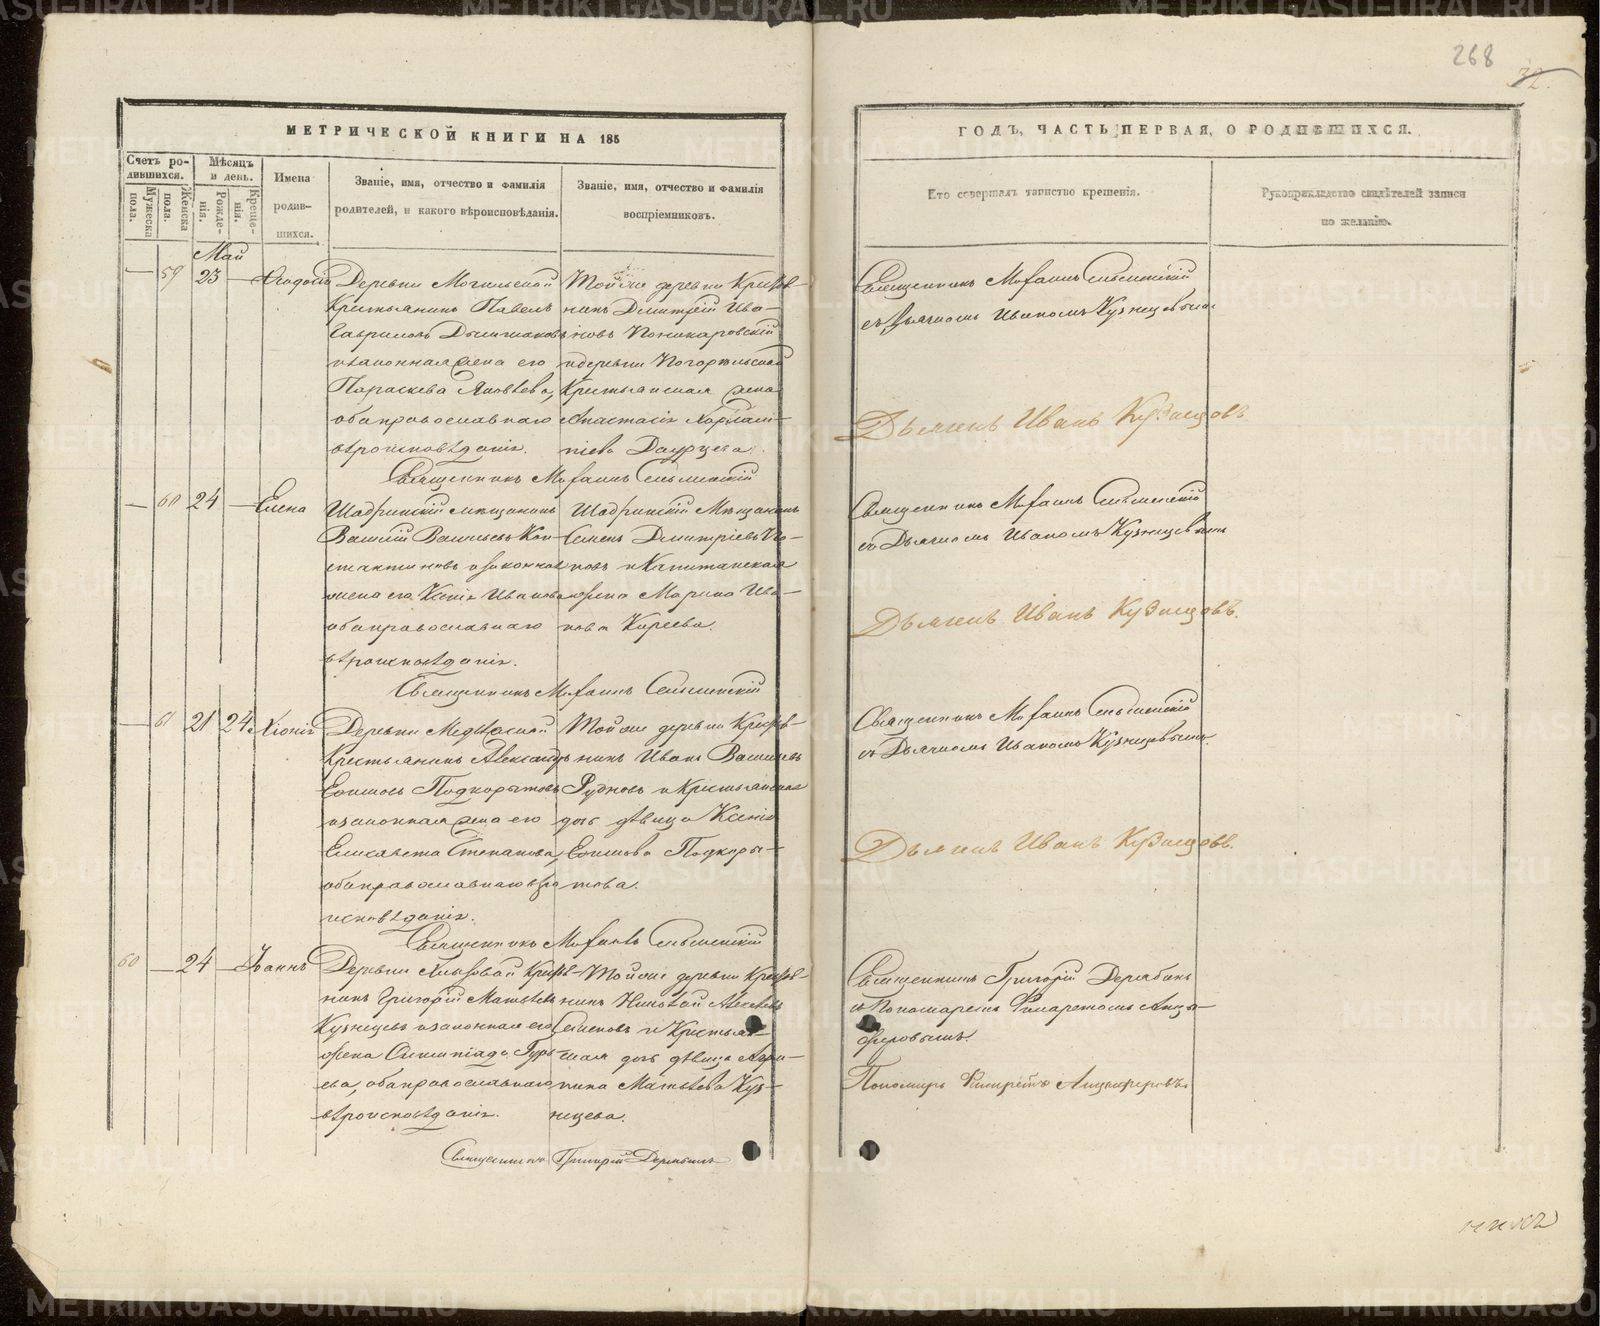 268
32.
МЕТРИЧЕСКОЙ КНИГИ НА 185
ГОДЪ, ЧАСТЬ ПЕРВАЯ, О РОДИВШИХСЯ.
Счетъ родившихся.
Мужеска пола.
Женска пола.
Мѣсяцъ и день.
Рожденія.
Крещенія.
Имена родившихся.
Званіе, имя, отчество и фамилія
родителей, и какого вѣроисповѣданія.
Званіе, имя, отчество и фамилія
воспріемниковъ.
Кто совершалъ таинство крещенія.
Рукоприкладство свидѣтелей записи
по желанію.
Май
— 59 23 — Ѳеодосія
Деревни Могильской
Крестьянинъ Павелъ
Гавриловъ
и законная жена его
Параскева Яковлева,
оба православнаго
вѣроисповѣданія.
Той же деревни Крестья-
нинъ Димитрій Ива-
новъ Поникаровскій
и деревни Погорѣльской
Крестьянская жена
Анастасія
Даурцева.
Священникъ
съ Дьячкомъ Иваномъ Кузнецовымъ
Дьячекъ Иванъ Кузнецовъ
Священникъ
— 60 24 — Елена
Шадринскій мѣщанинъ
Василій Васильевъ Кон-
стантиновъ и законная
жена его Ксенія Иванова
оба православнаго
вѣроисповѣданія.
Шадринскій Мѣщанинъ
Семенъ Димитріевъ По-
повъ и Капитанская
жена Марина Ива-
нова Киреева.
Священникъ
съ Дьячкомъ Иваномъ Кузнецовымъ
Дьячекъ Иванъ Кузнецовъ.
Священникъ
— 61 21 24 Хіонія
Деревни Медвѣдской
Крестьянинъ Александръ
Ефимовъ Подкорытовъ
и законная жена его
Елисавета Степанова,
оба православнаго вѣро
исповѣданія.
Той же деревни Крестья-
нинъ Иванъ Васильевъ
Рудновъ и Крестьянская
дочь дѣвица Ксенія
Ефимова Подкоры-
това.
Священникъ
съ Дьячкомъ Иваномъ Кузнецовымъ.
Дьячекъ Иванъ Кузнецовъ.
Священникъ
60 — 24 — Іоаннъ
Деревни Крестья-
нинъ Григорій Матвѣевъ
Кузнецовъ и законная его
жена Олимпіада Гурь-
ева, оба православнаго
вѣроисповѣданія.
Той же деревни Крестья-
нинъ Николай Алексѣевъ
Семеновъ и Крестьян-
ская дочь дѣвица Агри-
пина Матвѣева Куз-
нецова.
Священникъ Григорій Дерябинъ
съ Пономаремъ Филаретомъ Анцы-
феровымъ.
Пономарь Филаретъ Анцыферовъ.
Священникъ Григорій Дерябинъ